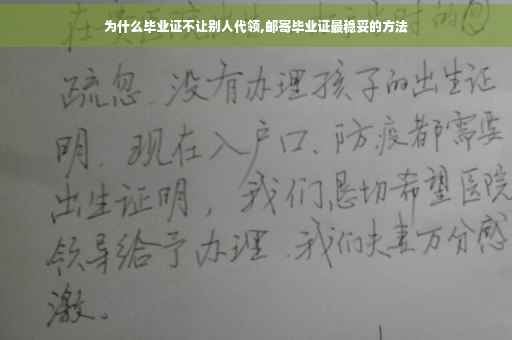 为什么毕业证不让别人代领,邮寄毕业证最稳妥的方法
疏忽、没有办理孩子的出生证
明、现在入户口、防疫都需要
出生证明，我们恳切希望医院
领导给予办理、我们夫妻万分感
激。